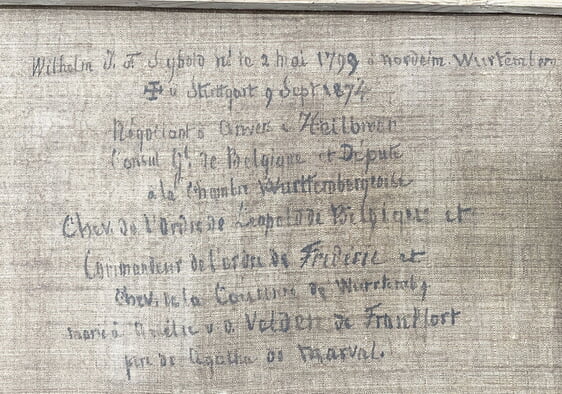 Wilhelm J. F. Sybold né le 2 mai 1799 à Nordeim Wurtemberg
✠ à Stuttgart 9 Sept 1874
Négociant à Anvers à Heilbronn
Consul Gl de Belgique et Député
à la Chambre Wurttembergeoise
Chev. de l'Ordre de Léopold de Belgique et
Commandeur de l'ordre de Frédéric et
Chev. de la Couronne de Wurttembg
marié à Amélie v d Velden de Frankfort
père de Agatha de Marval.